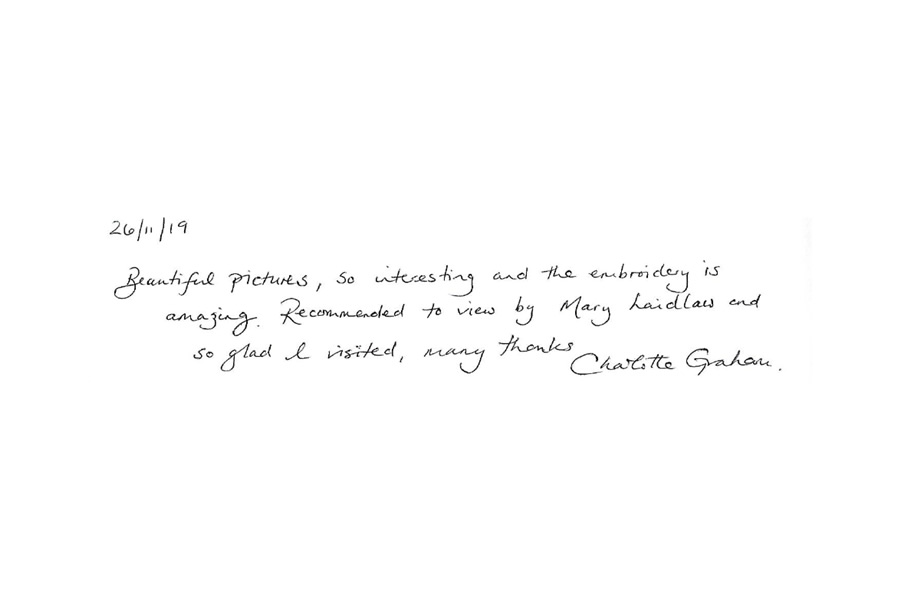 26/11/19
Beautiful pictures, so interesting and the embroidery is
amazing. Recommended to view by Mary Laidlaw and
so glad I visited, many thanks
Charlotte Graham.